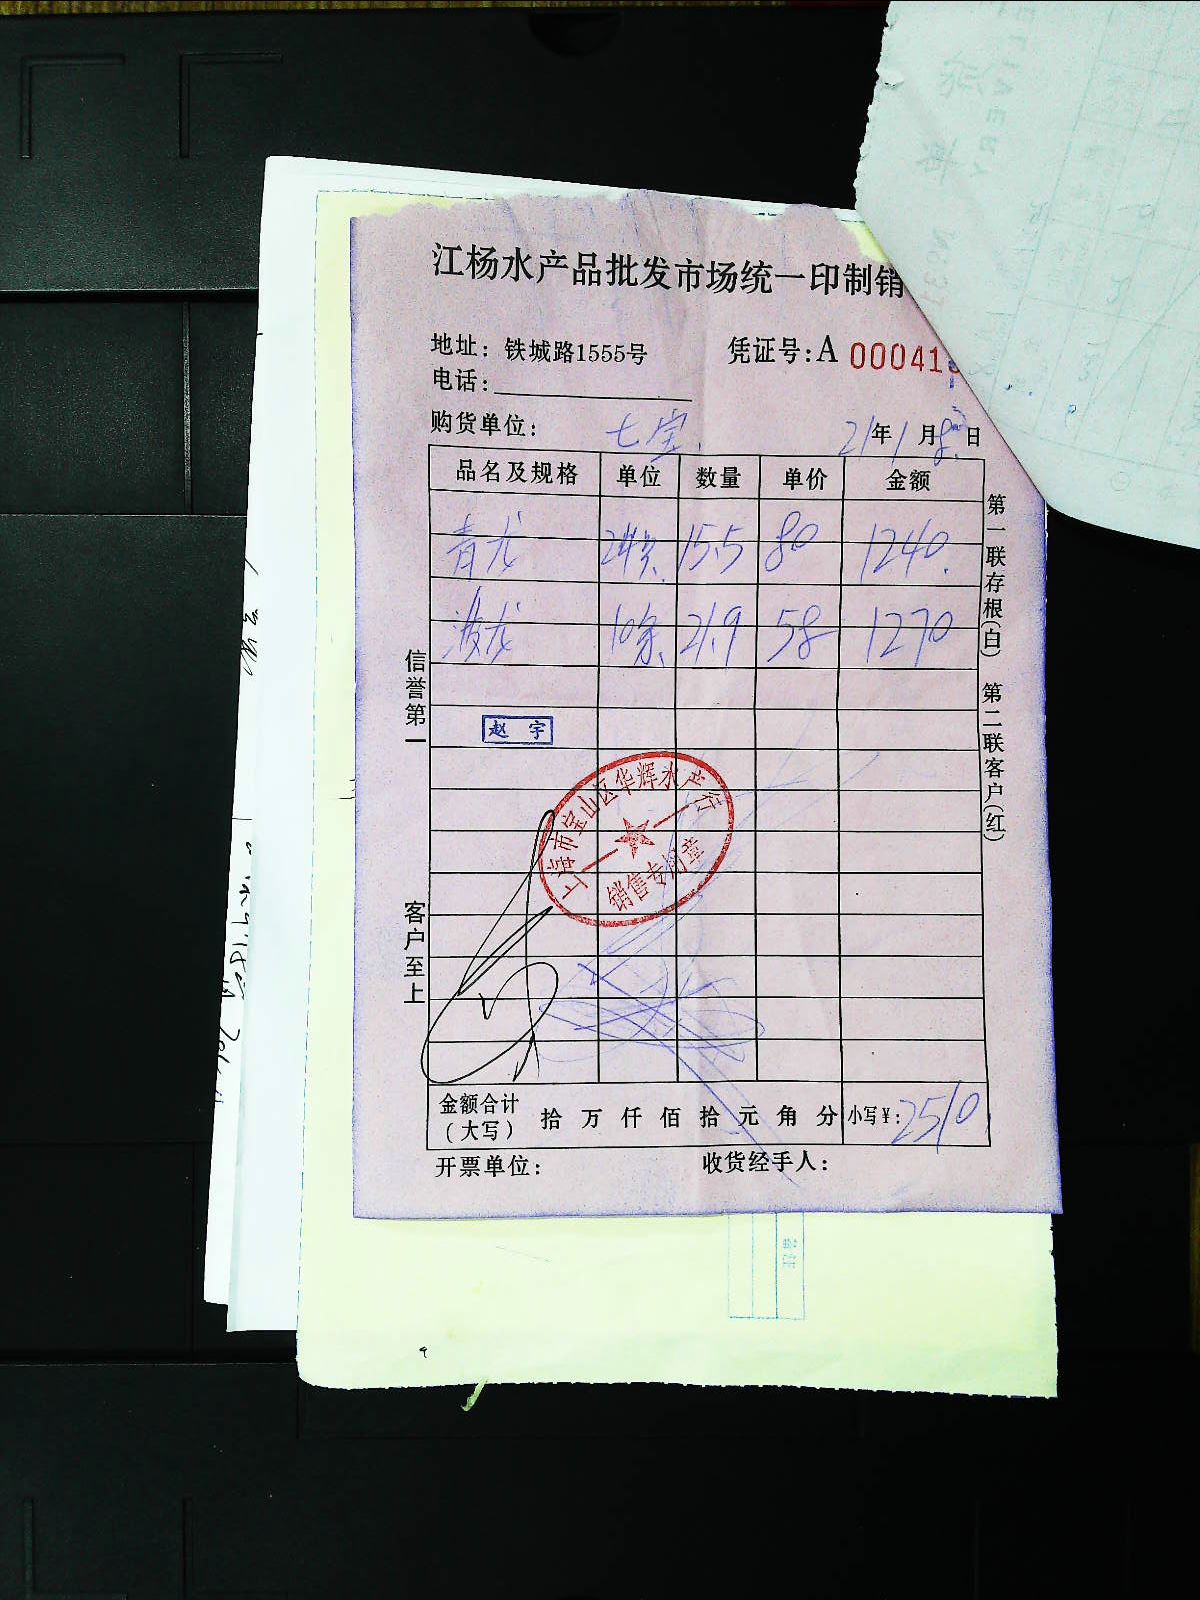 江杨水产品批发市场统一印制销
地址：铁城路1555号 凭证号：A 00041
电话：
购货单位： 七宝. 21年1月8日
品名及规格 单位 数量 单价 金额
青龙 24条. 15.5 80 1240.
波龙 10条. 21.9 58 1270
第一联存根(白) 第二联客户(红)
信誉第一
客户至上
赵宇
上海市宝山区华辉水产行
销售专用章
金额合计(大写) 拾 万 仟 佰 拾 元 角 分 小写¥: 2510
开票单位： 收货经手人：
备注